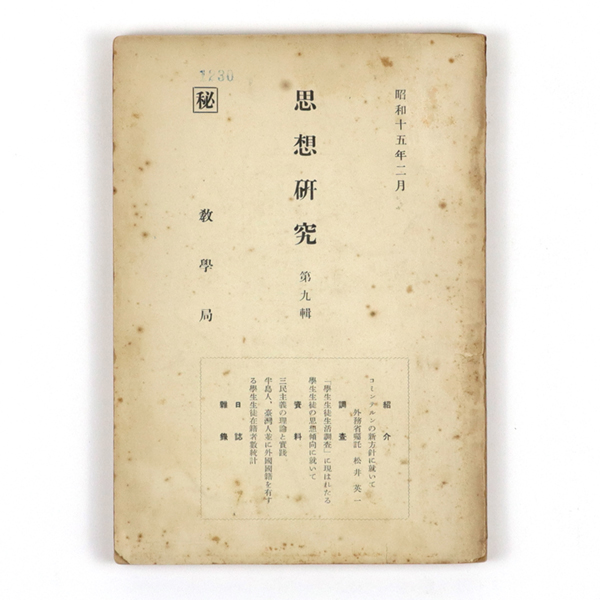 昭和十五年二月
思想硏究 第九輯
1230
秘
敎學局
紹介
コミンテルンの新方針に就いて
外務省囑託 松井英一
調査
「學生生徒生活調査」に現はれたる
學生生徒の思想傾向に就いて
資料
三民主義の理論と實踐
半島人、臺灣人並に外國國籍を有す
る學生生徒在籍者數統計
日誌
雜錄